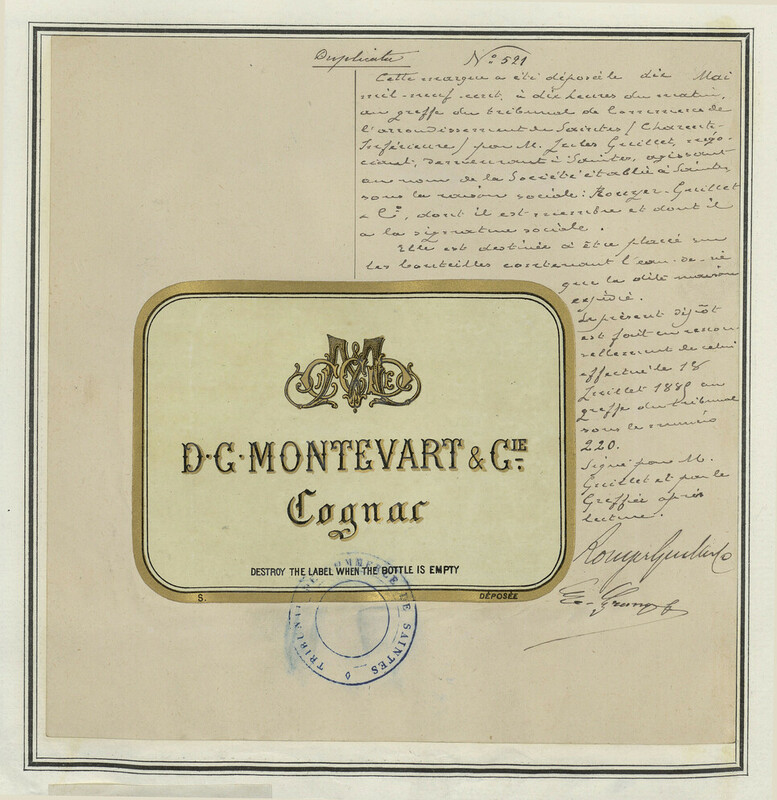 Duplicata
N° 521
Cette marque a été déposée le dix Mai
mil-neuf-cent, à dix heures du matin,
au greffe du tribunal de Commerce de
l'arrondissement de Saintes (Charente-
Inférieure) par M. Jules Guillet, négo-
ciant, demeurant à Saintes, agissant
au nom de la Société établie à Saintes
sous la raison sociale: Rouyer-Guillet
& Cº, dont il est membre et dont il
a la signature sociale.
Elle est destinée à être placée sur
les bouteilles contenant l'eau-de-vie
que la dite maison
expédie.
Le présent dépôt
est fait en renou-
vellement de celui
effectué le 18
Juillet 1885 au
greffe du tribunal
sous le numéro
220.
Signé par M.
Guillet et par le
Greffier après
lecture.
Rouyer Guillet & Co
D·G·MONTEVART & CIE
Cognac
DESTROY THE LABEL WHEN THE BOTTLE IS EMPTY
S.
DÉPOSÉE
TRIBUNAL DE COMMERCE DE SAINTES